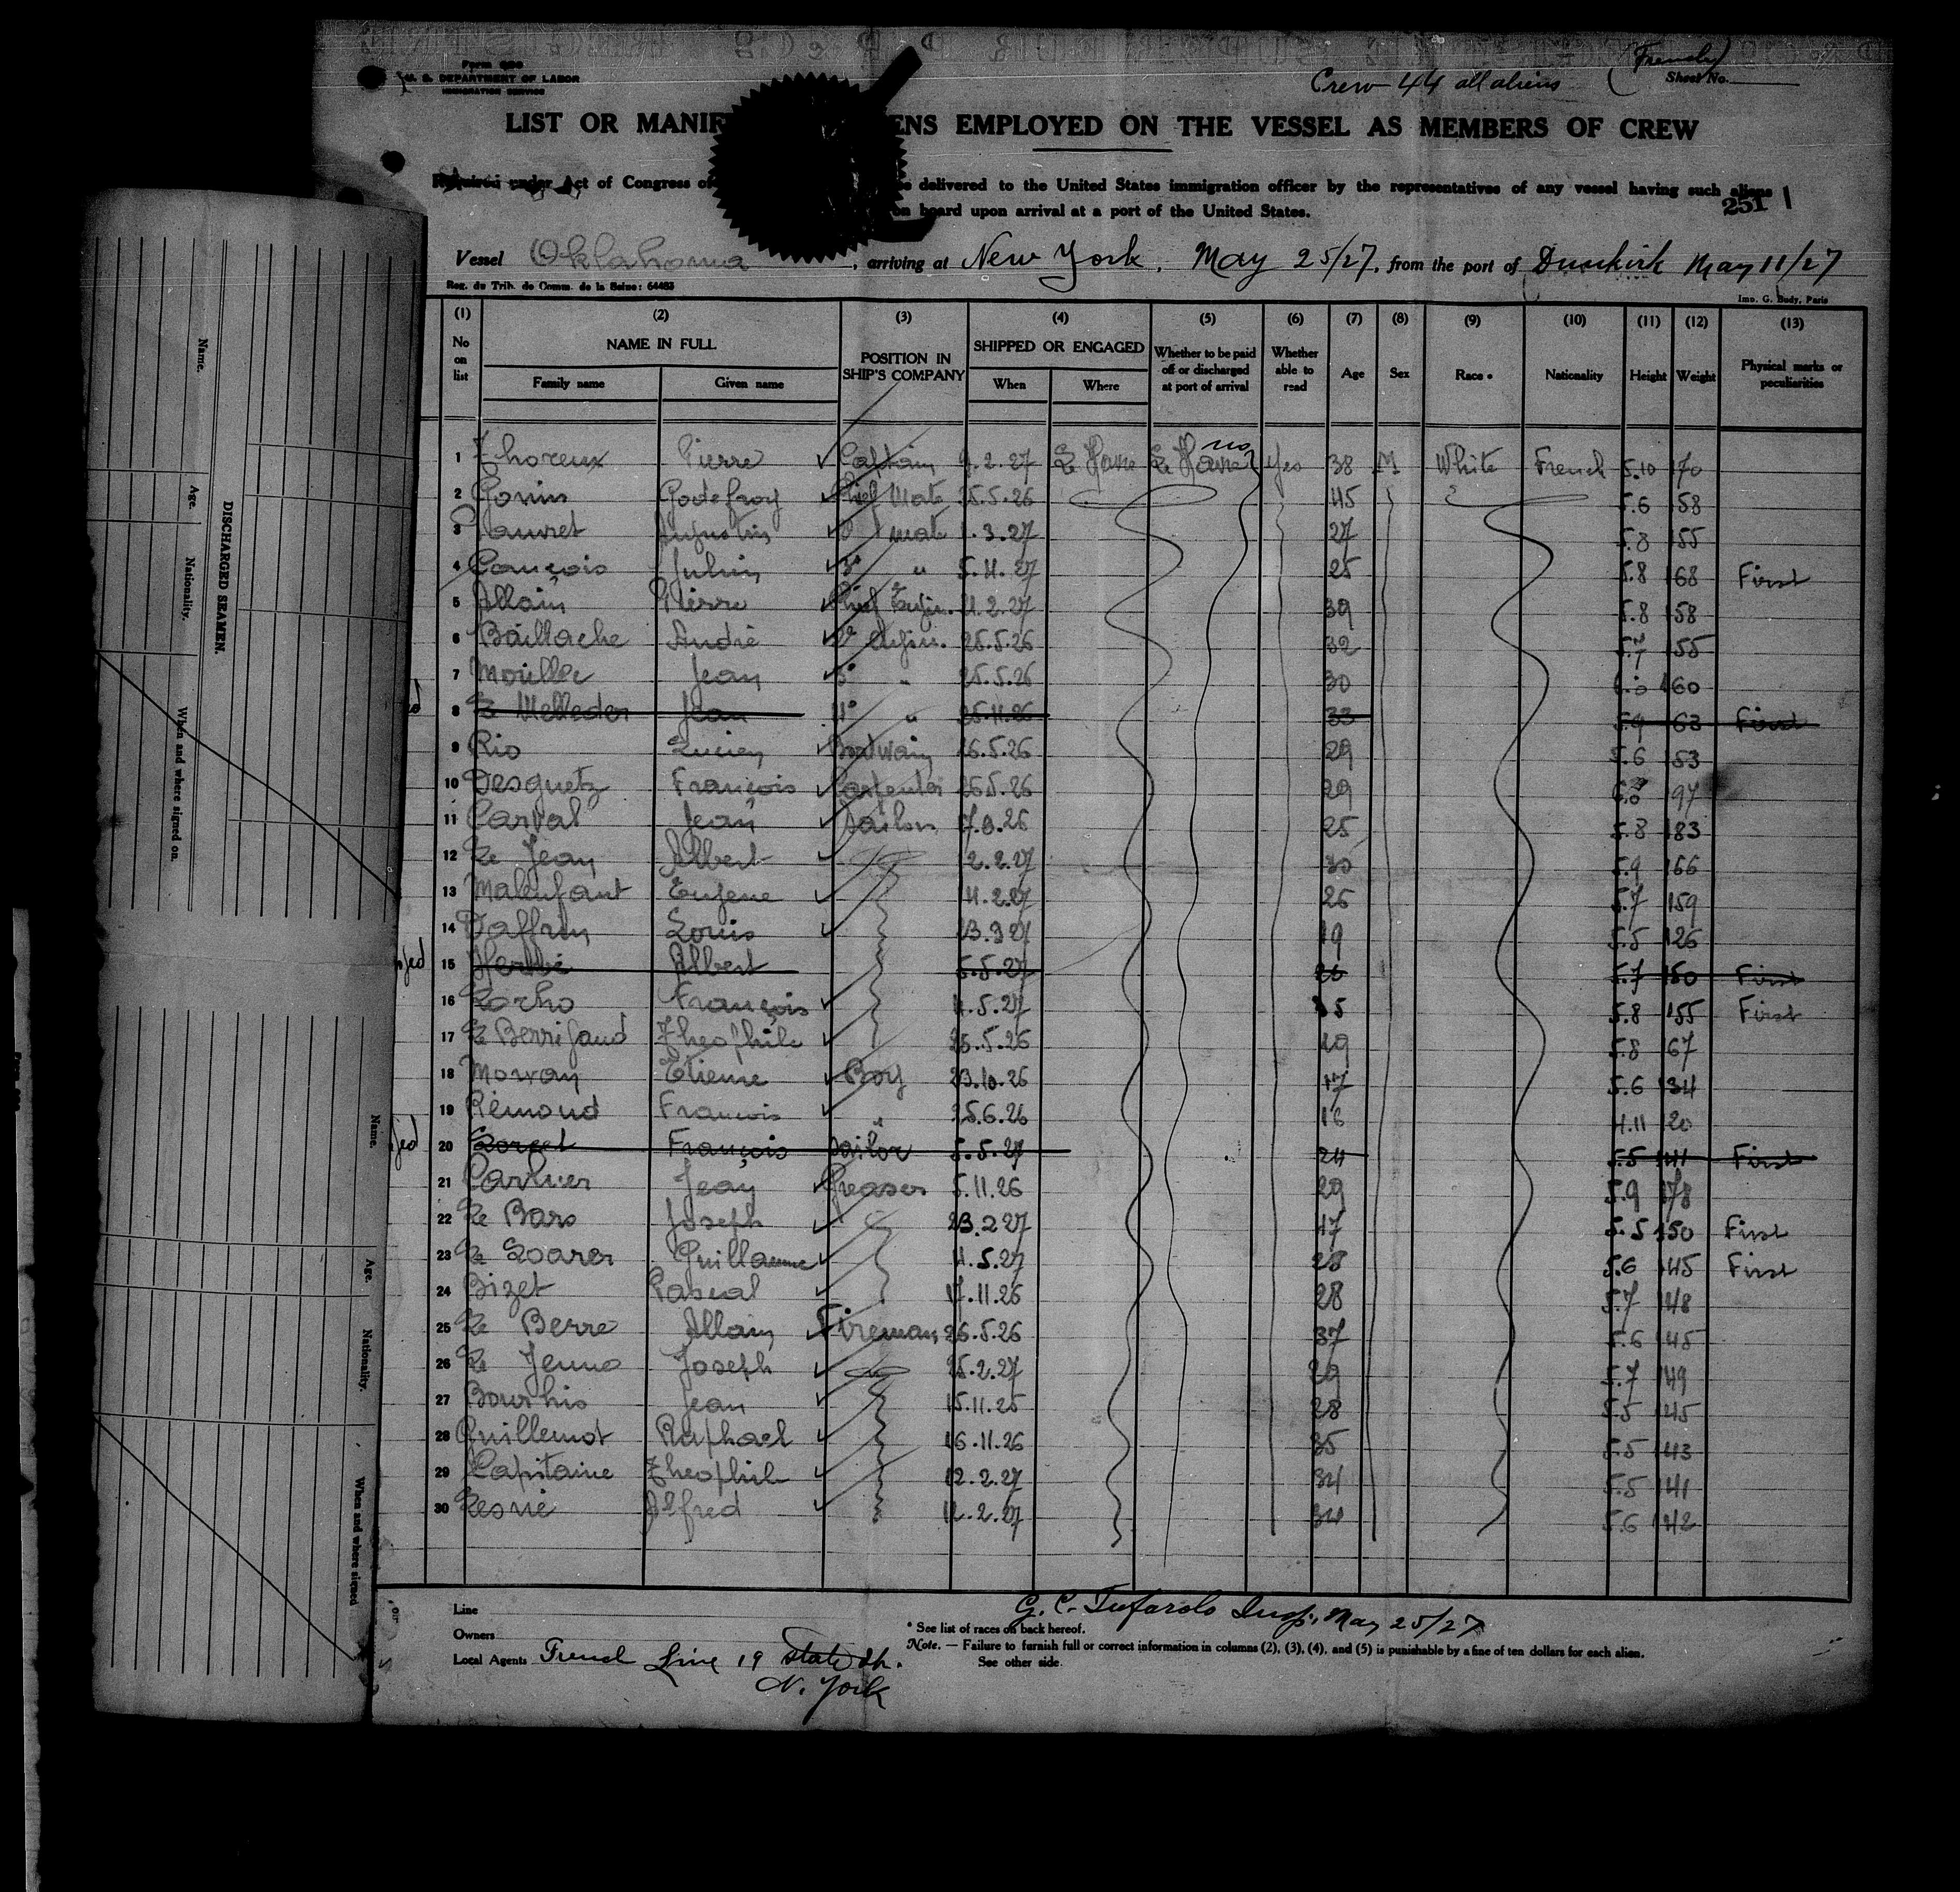 Form 680
U. S. DEPARTMENT OF LABOR
IMMIGRATION SERVICE
Crew 44 all aliens (French)
Sheet No.
LIST OR MANIF ENS EMPLOYED ON THE VESSEL AS MEMBERS OF CREW
Required under Act of Congress of e delivered to the United States immigration officer by the representatives of any vessel having such aliens
on board upon arrival at a port of the United States.
251
Vessel Oklahoma, arriving at New York, May 25/27, from the port of Dunkirk May 11/27
Reg. du Trib. de Comm. de la Seine: 64483
Imp. G. Budy, Paris
(1) (2) (3) (4) (5) (6) (7) (8) (9) (10) (11) (12) (13)
No on list NAME IN FULL Family name Given name POSITION IN SHIP'S COMPANY SHIPPED OR ENGAGED When Where Whether to be paid off or discharged at port of arrival Whether able to read Age Sex Race * Nationality Height Weight Physical marks or peculiarities
1 Thoreux Pierre Captain 9.2.27 Le Havre Le Havre no Yes 38 M White French 5.10 170
2 Gonin Godefroy Chief Mate 25.5.26 45 5.6 158
3 Augustin 2° mate 1.3.27 27 5.8 155
4 François Julien 3° " 5.4.27 25 5.8 168 First
5 Allain Pierre Chief Engin. 4.2.27 39 5.8 158
6 Baillache André 2° Engin. 25.5.26 32 5.7 155
7 Mouille Jean 3° " 25.5.26 30 160
8 Le Melleder Jean 4° " 25.11.26 33 5.9 163 First
9 Rio Lucien Boatwain 26.5.26 29 5.6 153
10 Desguetz François Carpenter 26.5.26 29 197
11 Carval Jean Sailor 17.9.26 25 5.8 183
12 Le Jean Albert 2.2.27 30 5.9 166
13 Malenfant Eugene 4.2.27 26 5.7 159
14 Daffrin Louis 23.3.27 19 5.5 126
15 Hervé Albert 5.5.27 26 5.7 150 First
16 Lorho François 4.5.27 35 5.8 155 First
17 Le Berrigaud Theophile 25.5.26 29 5.8 167
18 Morvan Etienne Boy 23.10.26 17 5.6 134
19 Rémond François " 25.6.26 16 4.11 120
20 François Sailor 5.5.27 24 5.5 141 First
21 Carluer Jean Greaser 5.11.26 29 5.9 178
22 Le Bars Joseph 23.2.27 47 5.5 150 First
23 Le Loarer Guillaume 4.5.27 28 5.6 145 First
24 Bizet Pascal 17.11.26 28 5.7 148
25 Le Berre Allain Fireman 26.5.26 37 5.6 145
26 Le Jenno Joseph 25.2.27 29 5.7 149
27 Bourhis Jean 15.11.25 28 5.5 145
28 Guillemot Raphael 16.11.26 35 5.5 143
29 Capitaine Theophile 12.2.27 34 5.5 141
30 Alfred 12.2.27 34 5.6 142
Line
Owners
Local Agents French Line 19 State St.
N. York
G. C. Tufarolo Insp. May 25/27
* See list of races on back hereof.
Note. — Failure to furnish full or correct information in columns (2), (3), (4), and (5) is punishable by a fine of ten dollars for each alien.
See other side.
DISCHARGED SEAMEN.
Name.
Age.
Nationality.
When and where signed on.
Name.
Age.
Nationality.
When and where signed